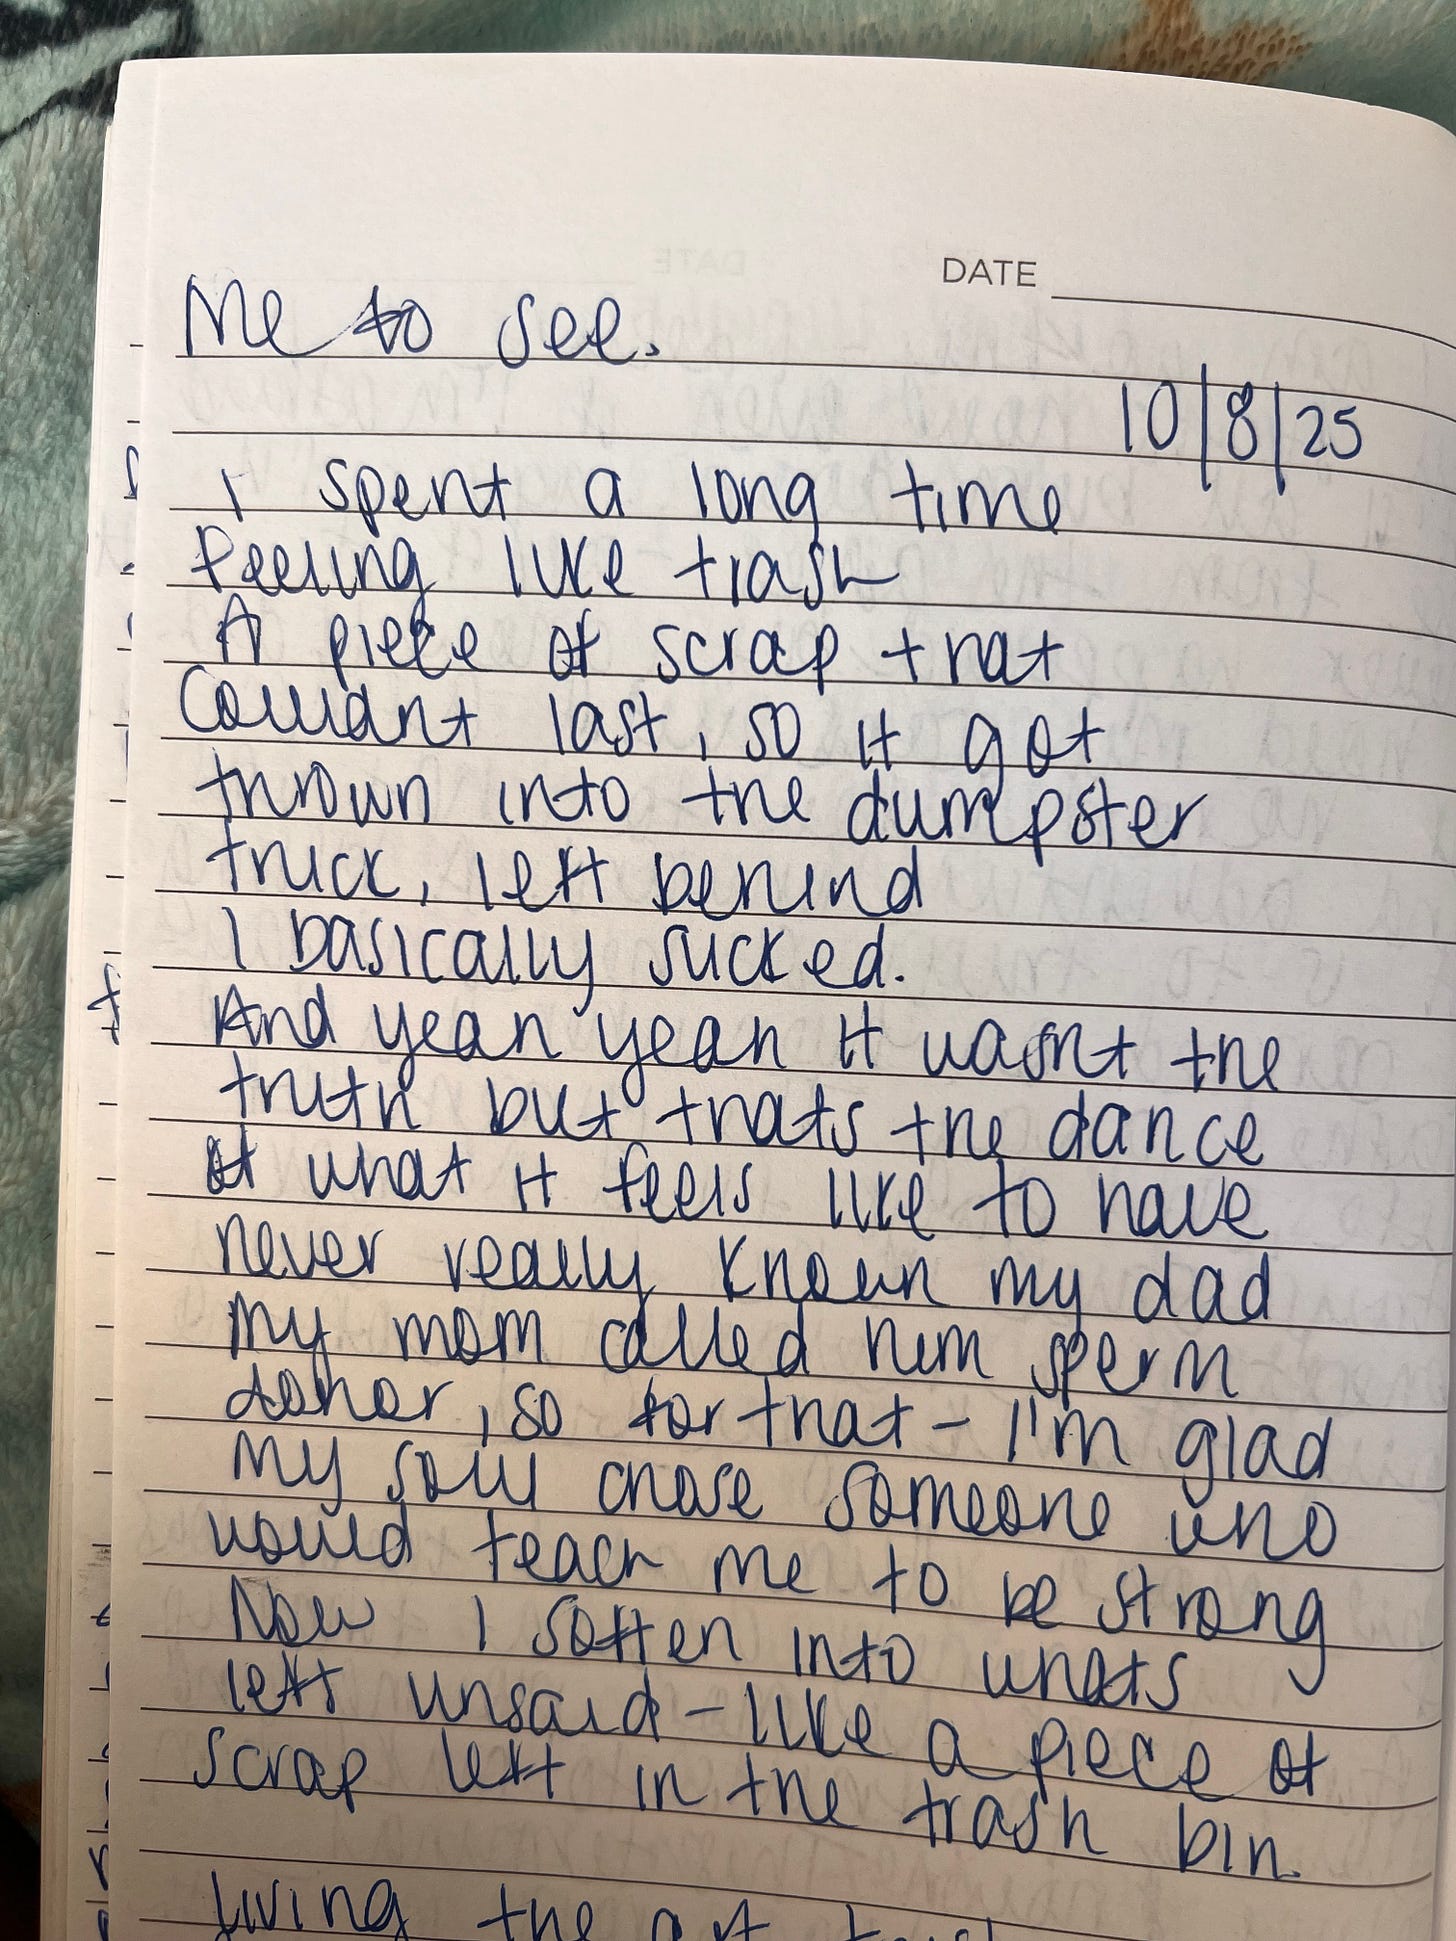 DATE
Me to see.
10/8/25
I spent a long time
feeling like trash
A piece of scrap that
couldnt last, so it got
thrown into the dumpster
truck, left behind
I basically sucked.
And yeah yeah it wasnt the
truth but thats the dance
of what it feels like to have
never really known my dad
My mom called him sperm
donor, so for that - I'm glad
My soul chose someone who
would teach me to be strong
Now I soften into whats
left unsaid - like a piece of
scrap left in the trash bin.
Living the art